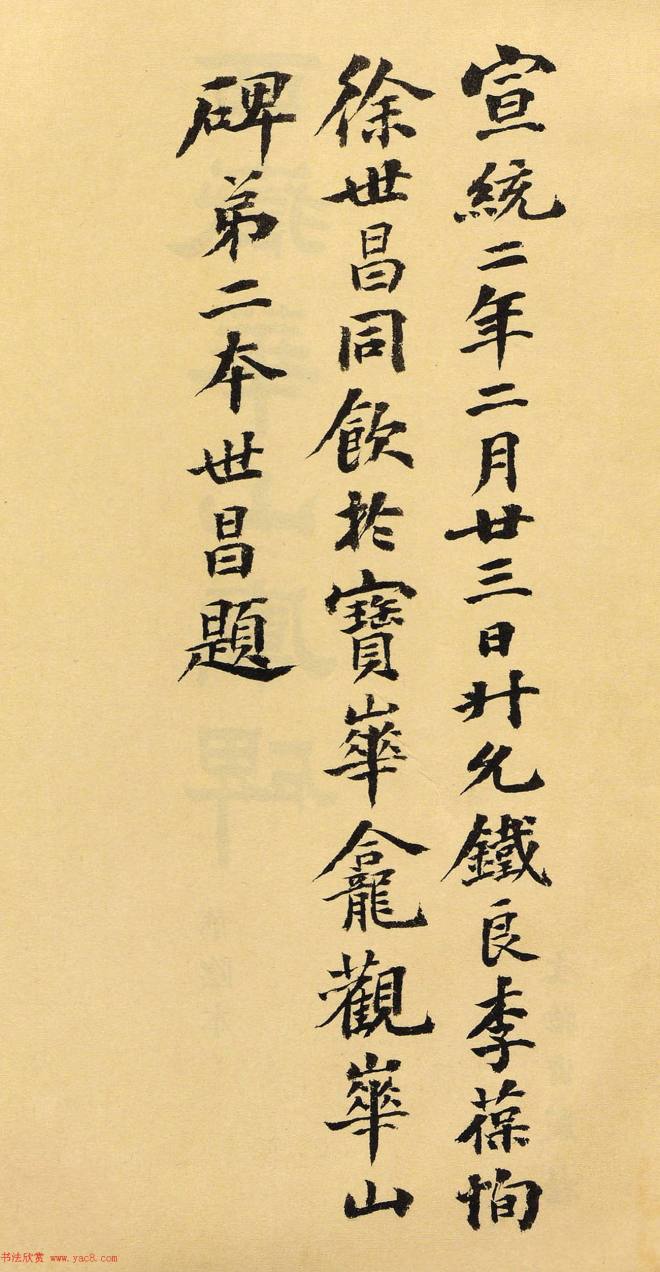 宣統二年二月廿三日升允鐵良李葆恂
徐世昌同飲於寶崋龕觀崋山
碑弟二本世昌題
书法欣赏 www.yac8.com